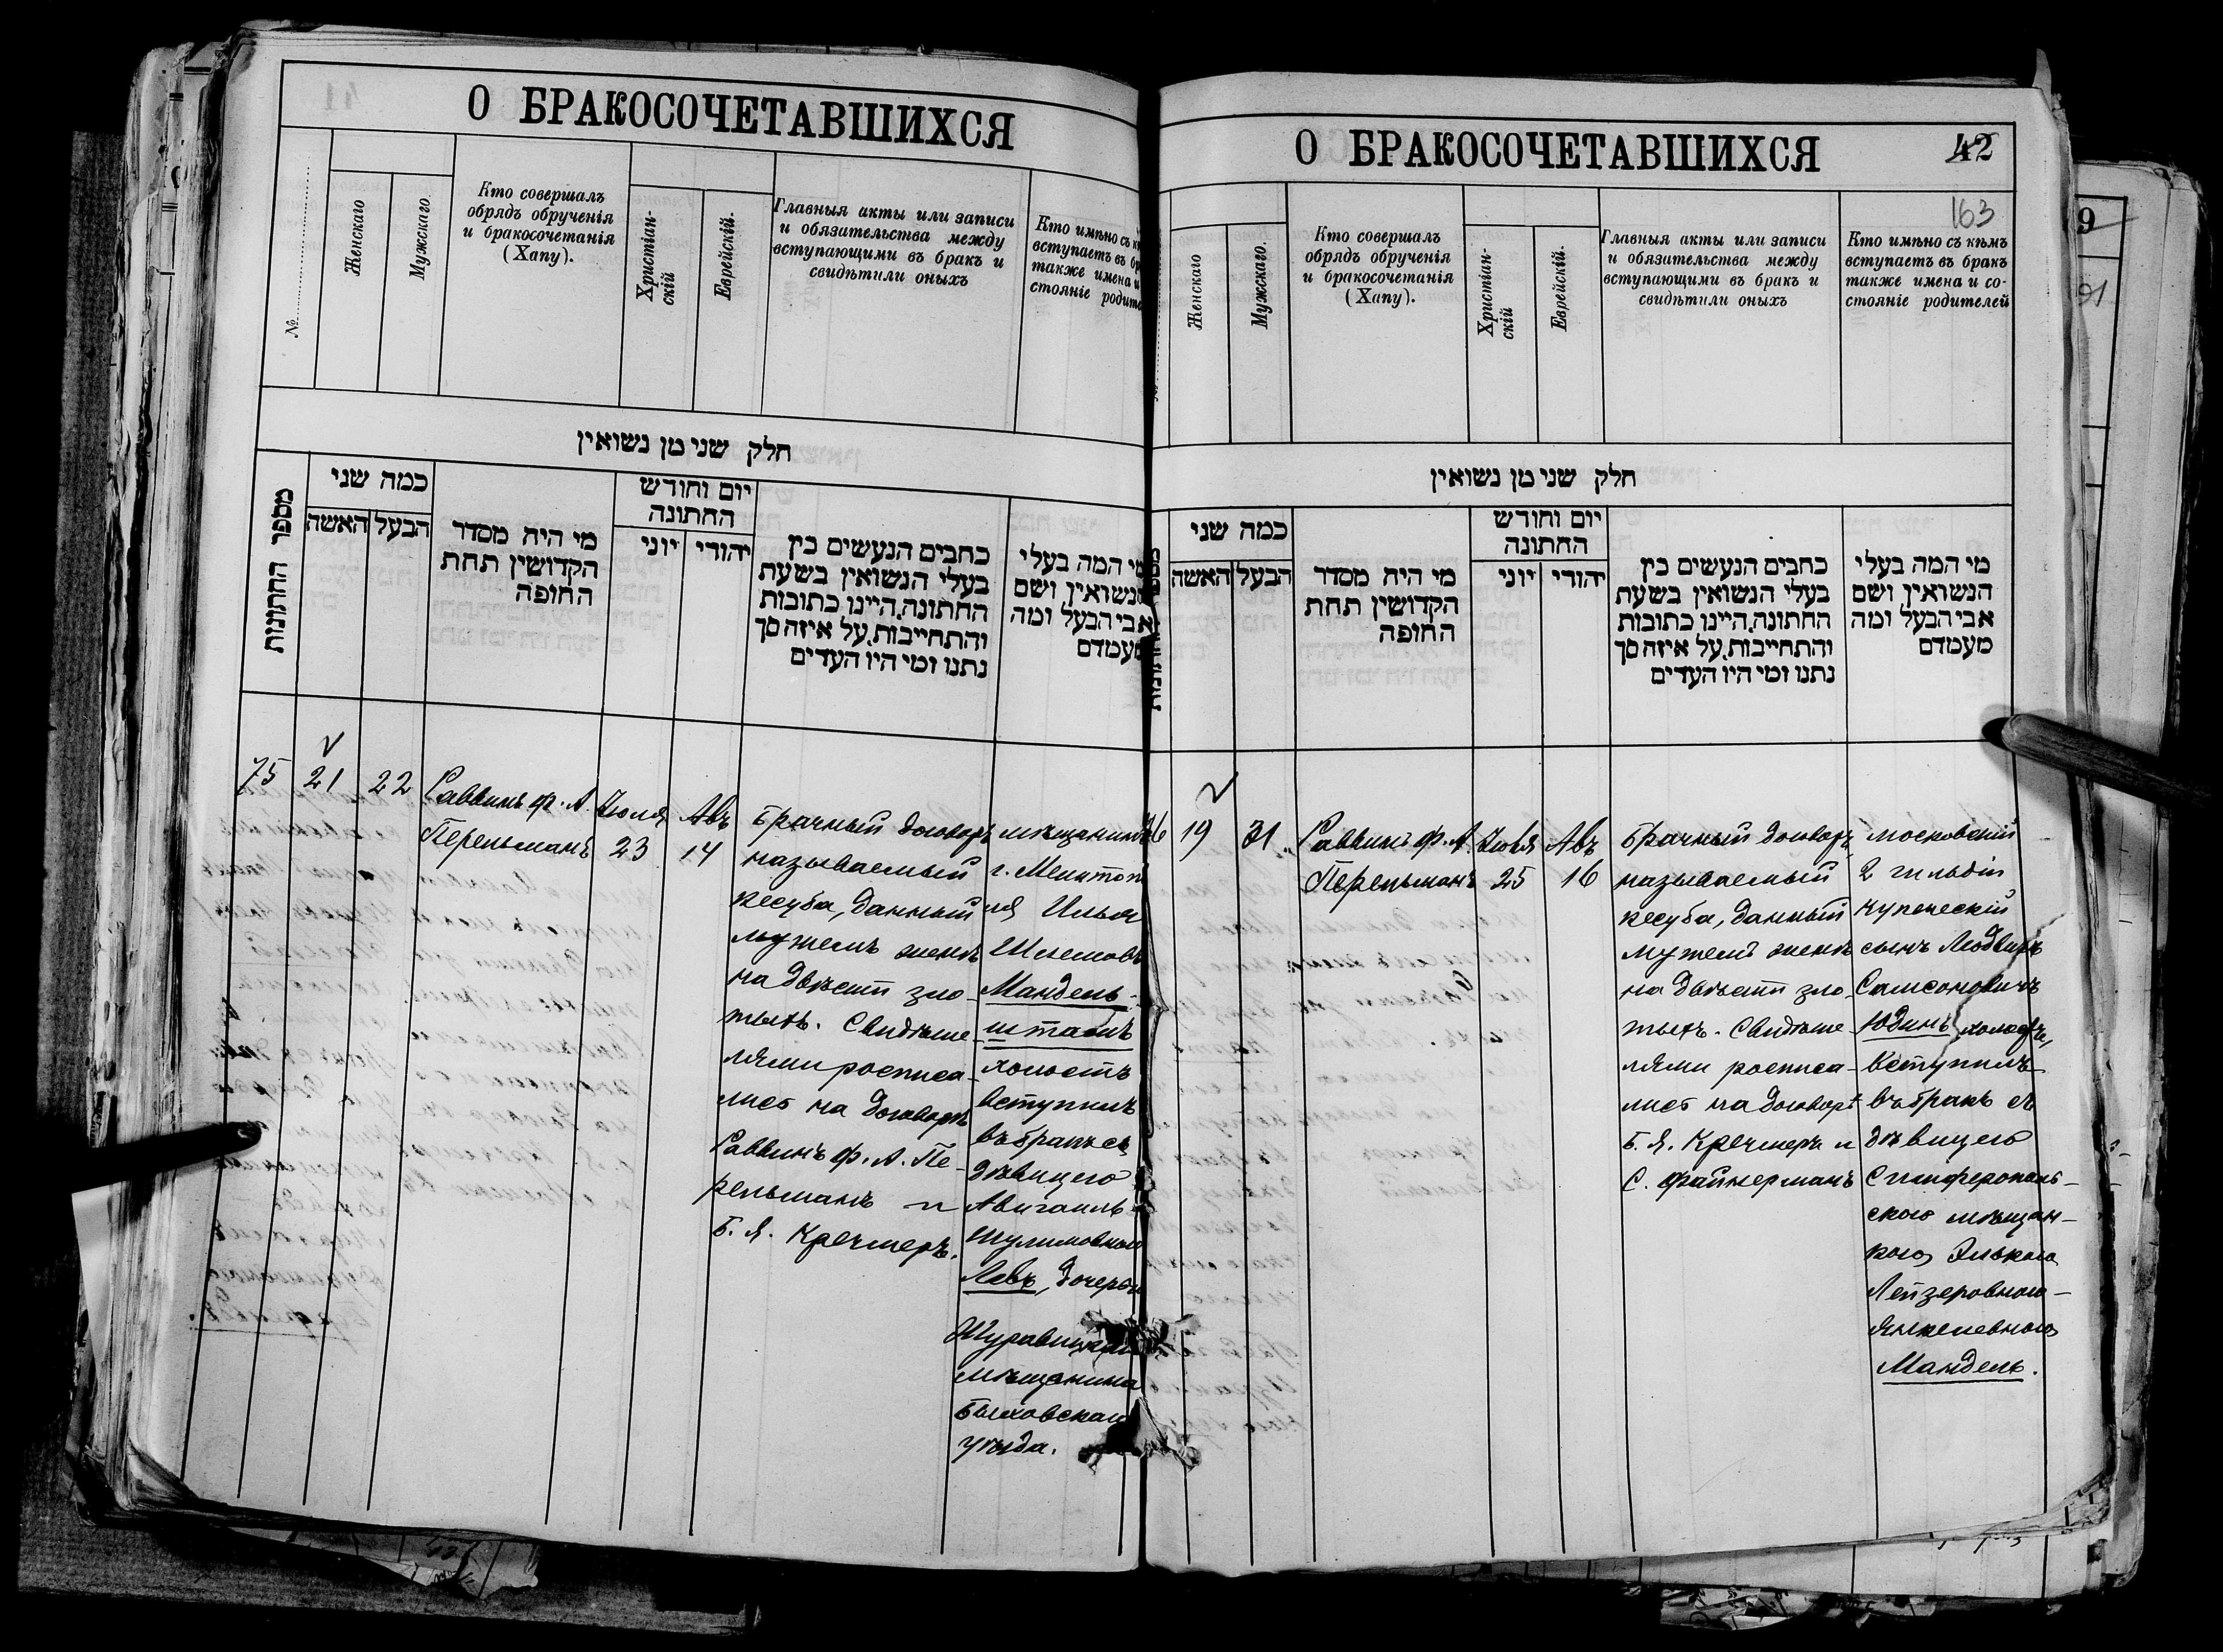 О БРАКОСОЧЕТАВШИХСЯ
№
Женскаго
Мужскаго
Кто совершалъ
обрядъ обрученія
и бракосочетанія
(Хапу).
Христіан-
скій
Еврейскій.
Главныя акты или записи
и обязательства между
вступающими въ брак и
свидѣтили оныхъ
Кто имѣно съ
вступаетъ въ
также имена и
стояніе
חלק שני מן נשואין
מספר החתונות
כמה שני
האשה
הבעל
מי היה מסדר
הקדושין תחת
החופה
יום וחודש
החתונה
יוני
יהודי
כתבים הנעשים בין
בעלי הנשואין בשעת
החתונה,היינו כתובות
והתחייבות,על איזה סך
נתנו ומי היו העדים
מי המה בעלי
הנשואין ושם
אבי הבעל ומה
מעמדם
75
21
22
Раввинъ ф. А.
Перельманъ
Іюля
23
Авъ
14
Брачный договоръ
называемый
кесуба, данный
мужемъ женѣ
на двѣсти зло-
тыхъ. Свидѣте-
лями росписа-
лись на договорѣ
Раввинъ Ф. А. Пе-
рельманъ и
Б. Я. Кречмеръ.
мѣщанинъ
г.
ля Илья
Мандель-
штамъ
холостъ
вступилъ
въ бракъ съ
дѣвицею
Авигаиль
Шулимовною
Левъ, дочерью
мѣщанина
Быховскаго
уѣзда.
О БРАКОСОЧЕТАВШИХСЯ
42
163
Женскаго
Мужскаго.
Кто совершалъ
обрядъ обрученія
и бракосочетанія
(Хапу).
Христіан-
скій
Еврейскій.
Главныя акты или записи
и обязательства между
вступающими въ брак и
свидѣтили оныхъ
Кто имѣно съ кѣмъ
вступаетъ въ бракъ
также имена и со-
стояніе родителей
חלק שני מן נשואין
כמה שני
האשה
הבעל
מי היה מסדר
הקדושין תחת
החופה
יום וחודש
החתונה
יוני
יהודי
כתבים הנעשים בין
בעלי הנשואין בשעת
החתונה,היינו כתובות
והתחייבות,על איזה סך
נתנו ומי היו העדים
מי המה בעלי
הנשואין ושם
אבי הבעל ומה
מעמדם
76
19
31
Раввинъ Ф. А.
Перельманъ
Іюля
25
Авъ
16
Брачный договоръ,
называемый
кесуба, данный
мужемъ женѣ
на двѣсти зло-
тыхъ. Свидѣте-
лями росписа-
лись на договорѣ
Б. Я. Кречмеръ и
С. Файнерманъ
московскій
2 гильдіи
купеческій
сынъ Людвигъ
Самсоновичъ
Юдинъ, холостъ,
вступилъ
въ бракъ съ
дѣвицею
Симферополь-
скою мѣщан-
кою Элькою
Лейзеровною-
Янкелевною
Мандель.
9